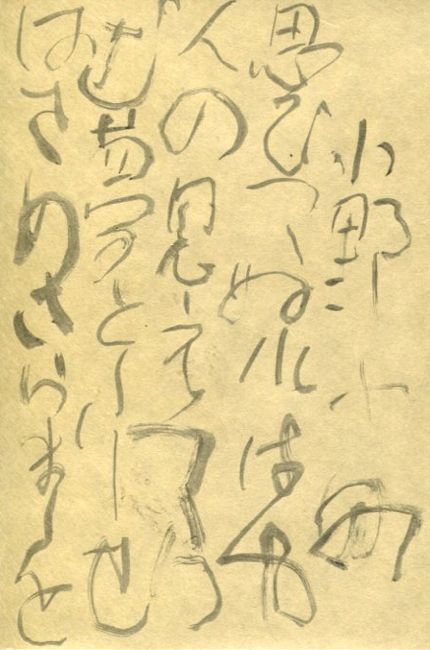 小野小町
思ひつゝぬれはや
人の見えつら
む夢としりせ
はさめさらましを